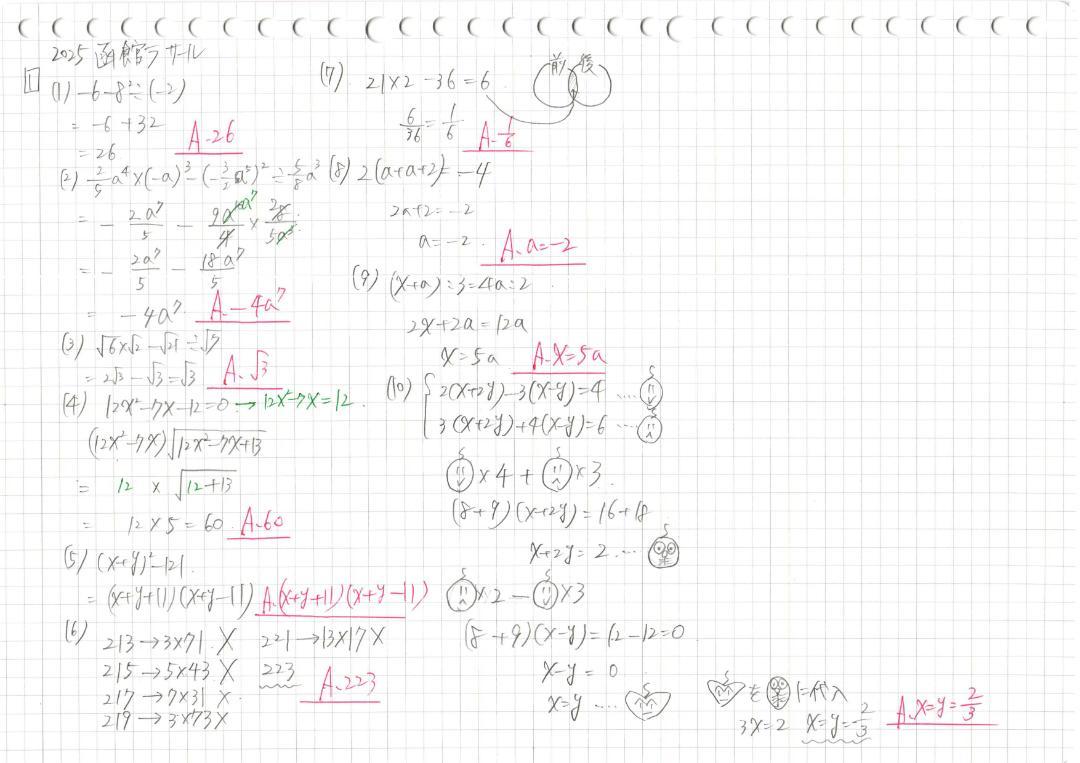 2025 函館ラ・サール
1
(1) -6-8²÷(-2)
= -6+32
= 26 A. 26
(2) -2/5a⁴×(-a)³-(-3/2a⁵)²÷5/8a³
= - 2a⁷/5 - 9a¹⁰a⁷/4 × 28/5a³
= - 2a⁷/5 - 18a⁷/5
= -4a⁷. A. -4a⁷
(3) √6×√2-√21÷√7
= 2√3-√3=√3 A. √3
(4) 12x²-7x-12=0 → 12x²-7x=12.
(12x²-7x)√12x²-7x+13
= 12 × √12+13
= 12×5=60. A. 60
(5) (x+y)²-121.
= (x+y+11)(x+y-11) A. (x+y+11)(x+y-11)
(6) 213→3×71. X 221→13×17 X
215→5×43 X 223
217→7×31 X. A. 223
219→3×73 X
(7) 21×2-36=6. 前 後
6/36=1/6 A. 1/6
(8) 2(a+a+2)=-4
2a+2=-2
a=-2. A. a=-2
(9) (x+a):3=4a:2.
2x+2a=12a
x=5a A. x=5a
(10) 2(x+2y)-3(x-y)=4 ....
3(x+2y)+4(x-y)=6 ...
×4+ ×3.
(8+9)(x+2y)=16+18
x+2y=2 ...
×2- ×3
(8+9)(x-y)=12-12=0
x-y=0
x=y ....
を に代入
3x=2 x=y=2/3 A. x=y=2/3